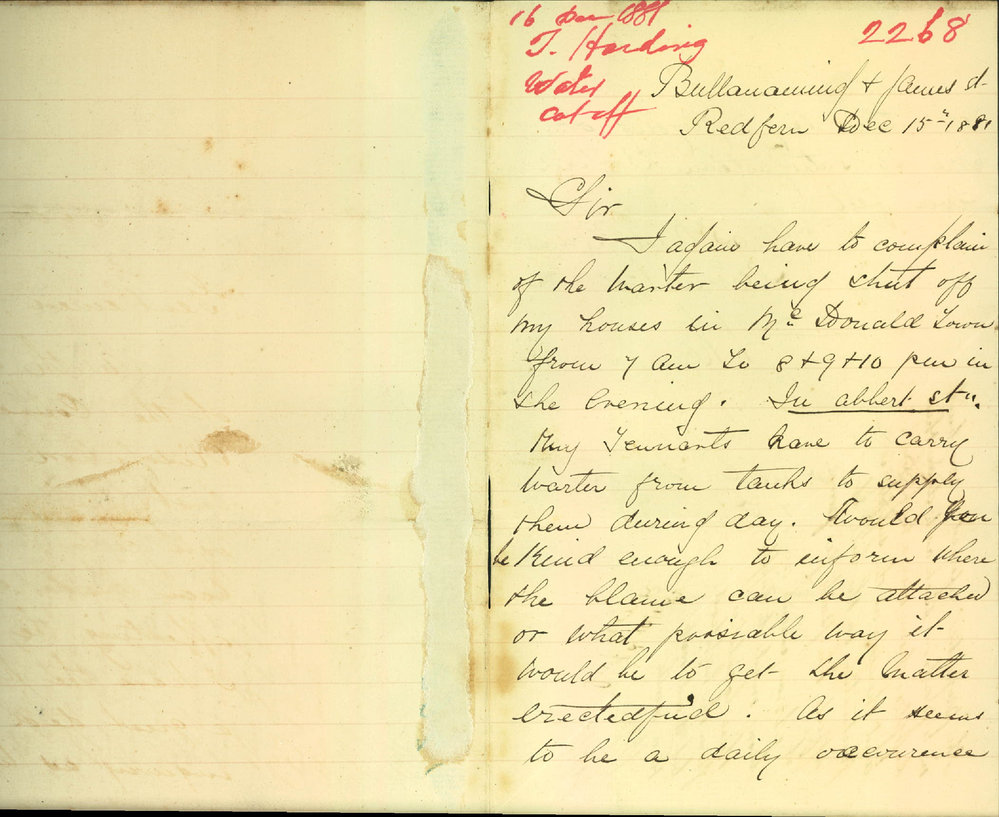 16 Dec 1881
T. Harding
Water
cut off
2268
Bullanaming & James st
Redfern Dec 15th 1881
Sir
I again have to complain
of the Warter being shut off
my houses in Mc Donald Town
from 7 Am To 8 & 9 & 10 pm in
the Evening. In abbert st".
My Tennants have to carry
Warter from tanks to supply
them during day. Would you
be Kind enough to inform where
the blame can be attached
or what possiable way it
would be to get the Matter
erectedfied. As it seems
to be a daily occourence